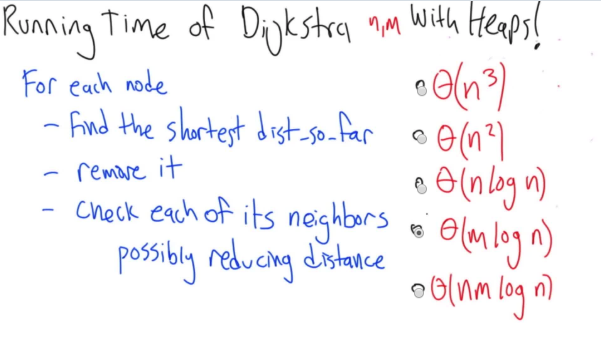 Running Time of Dijkstra n,m With Heaps!
For each node
- find the shortest dist_so_far
- remove it
- check each of its neighbors
possibly reducing distance
Θ(n³)
Θ(n²)
Θ(n log n)
Θ(m log n)
Θ(nm log n)